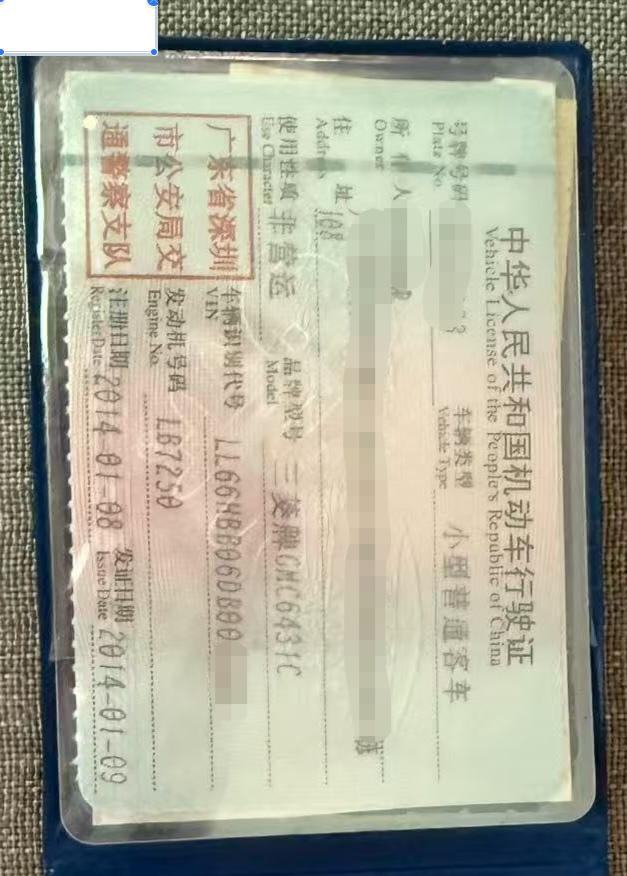 中华人民共和国机动车行驶证
Vehicle License of the People's Republic of China
号牌号码
Plate No.
车辆类型 小型普通客车
Vehicle Type
所有人
Owner
住址
Address
108
使用性质 非营运
Use Character
品牌型号 三菱牌CMC6431C
Model
广东省深圳
市公安局交
通警察支队
车辆识别代号 LL66HBB06DB00
VIN
发动机号码 LB7250
Engine No.
注册日期 2014-01-08
Register Date
发证日期 2014-01-09
Issue Date